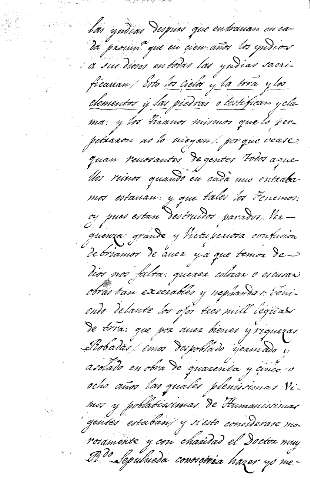 las yndias despues que entrauan en ca
da prouinª que en cien años los yndios
a sus dioses en todas las yndias sacri-
ficauan: Esto los cielos y la trrª y los
elementos y las piedras testifican y cla
man: y los tiranos mismos que lo per
petraron no lo niegan: porque vease
quan rebosantes de gentes todos aque
llos reinos quando en cada uno entraba
mos estauan: y que tales los tenemos
oy pues estan destruidos parados. Ver-
guenza grande y confusion
debriamos de auer ya que temor de
dios nos falta: querer excusar
obras tan execrables y nephandas: vini
endo delante los ojos tres mill leguas
de trrª: que por auer bienes y riquezas
Robadas: emos despoblado quemado y
asolado en obra de quarenta y cinco o
ocho años las quales plenissimas Vi
mos y poblatissimas de Humanissimas
gentes estaban: y si esto considerase mo
rosamente y con charidad el Doctor muy
Rdo Sepulueda conosceria hazer yo me-